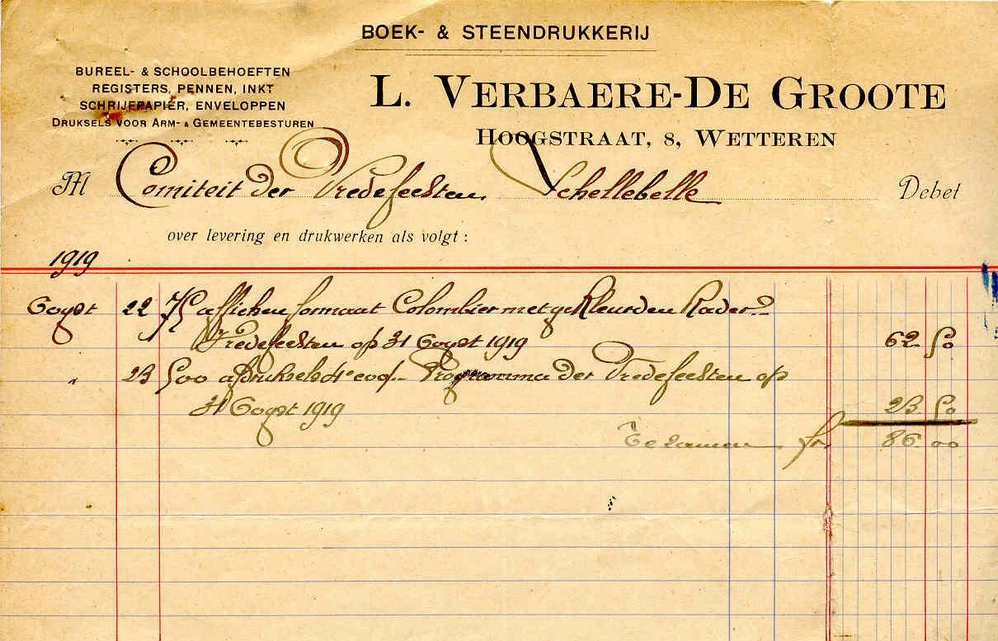 BOEK- & STEENDRUKKERIJ
BUREEL- & SCHOOLBEHOEFTEN
REGISTERS, PENNEN, INKT
SCHRIJFPAPIER, ENVELOPPEN
DRUKSELS VOOR ARM- & GEMEENTEBESTUREN
L. VERBAERE-DE GROOTE
HOOGSTRAAT, 8, WETTEREN
M Comiteit der Vredefeesten, Schellebelle Debet
over levering en drukwerken als volgt :
1919
Oogst 22 affichen formaat Colombier met gekleurden Kader
Vredefeesten op 31 Oogst 1919 62 50
" 23 500 afdruksels 4e Programma der Vredefeesten op
31 Oogst 1919 23 50
Te zamen fr. 86 00